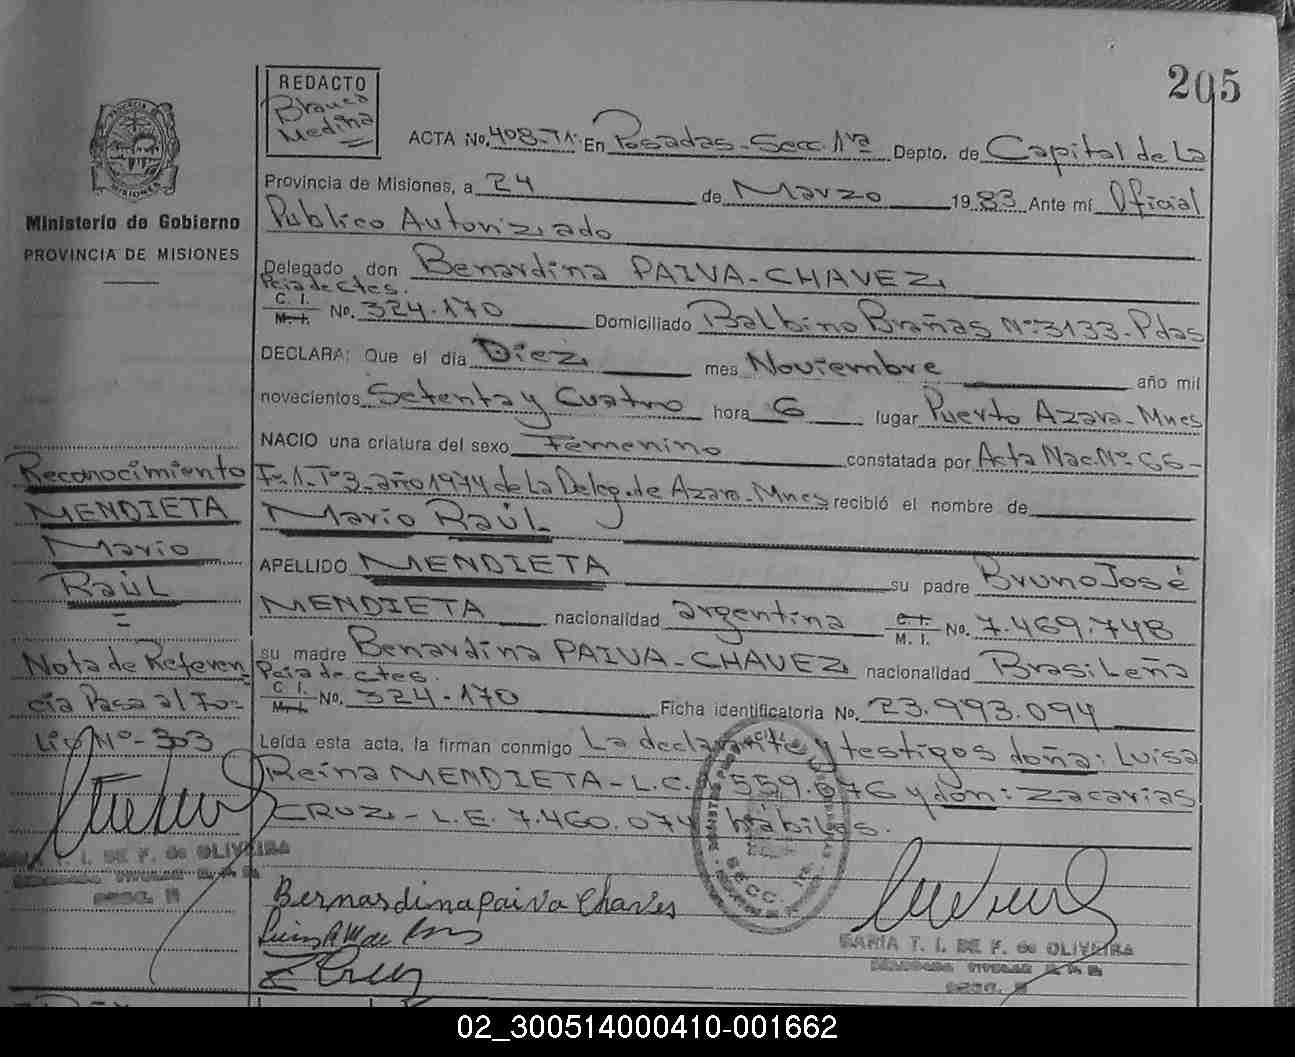 205
REDACTO
Blanca
Medina
ACTA No. 408-T1: En Posadas-Secc. 1ra Depto. de Capital de La
Provincia de Misiones, a 24 de Marzo 1983 Ante mí Oficial
Publico Autorizado
Delegado don Benardina PAIVA-CHAVEZ
Pcia de Ctes.
C. I.
M. I. No. 324.170 Domiciliado Balbino Brañas Nº 3133-Pdas
DECLARA: Que el día Diez mes Noviembre año mil
novecientos Setenta y Cuatro hora 6 lugar Puerto Azara-Mnes
NACIO una criatura del sexo Femenino constatada por Acta Nac. Nº 66-
Fº 1-Tº 3-año 1974 de La Deleg. de Azara-Mnes recibió el nombre de
Mario Raúl
APELLIDO MENDIETA su padre Bruno José
MENDIETA nacionalidad argentina C. I.
M. I. No. 7.469.748
su madre Benardina PAIVA-CHAVEZ nacionalidad Brasileña
Pcia de Ctes.
C. I.
M. I. No. 324.170 Ficha identificatoria No. 23.993.094
Leída esta acta, la firman conmigo La declarante y testigos doña: Luisa
Reina MENDIETA-L.C. 559.676 y don: Zacarias
CRUZ-L.E. 7.460.074 hábiles.
Bernardina paiva Chaves
Z Cruz
SECC. 1ra.
MARIA T. I. DE F. de OLIVEIRA
Ministerio de Gobierno
PROVINCIA DE MISIONES
Reconocimiento
MENDIETA
Mario
Raúl
=
Nota de Referen-
cia Pasa al Fo-
lio Nº-303
T. I. DE F. de OLIVEIRA
02_300514000410-001662